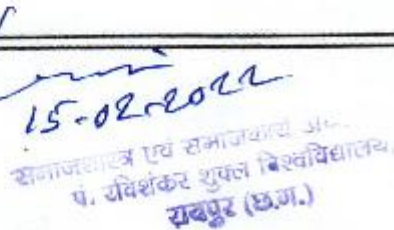 15-02-2022
समाजशास्त्र एवं समाजकार्य
पं. रविशंकर शुक्ल विश्वविद्यालय,
रायपुर (छ.ग.)